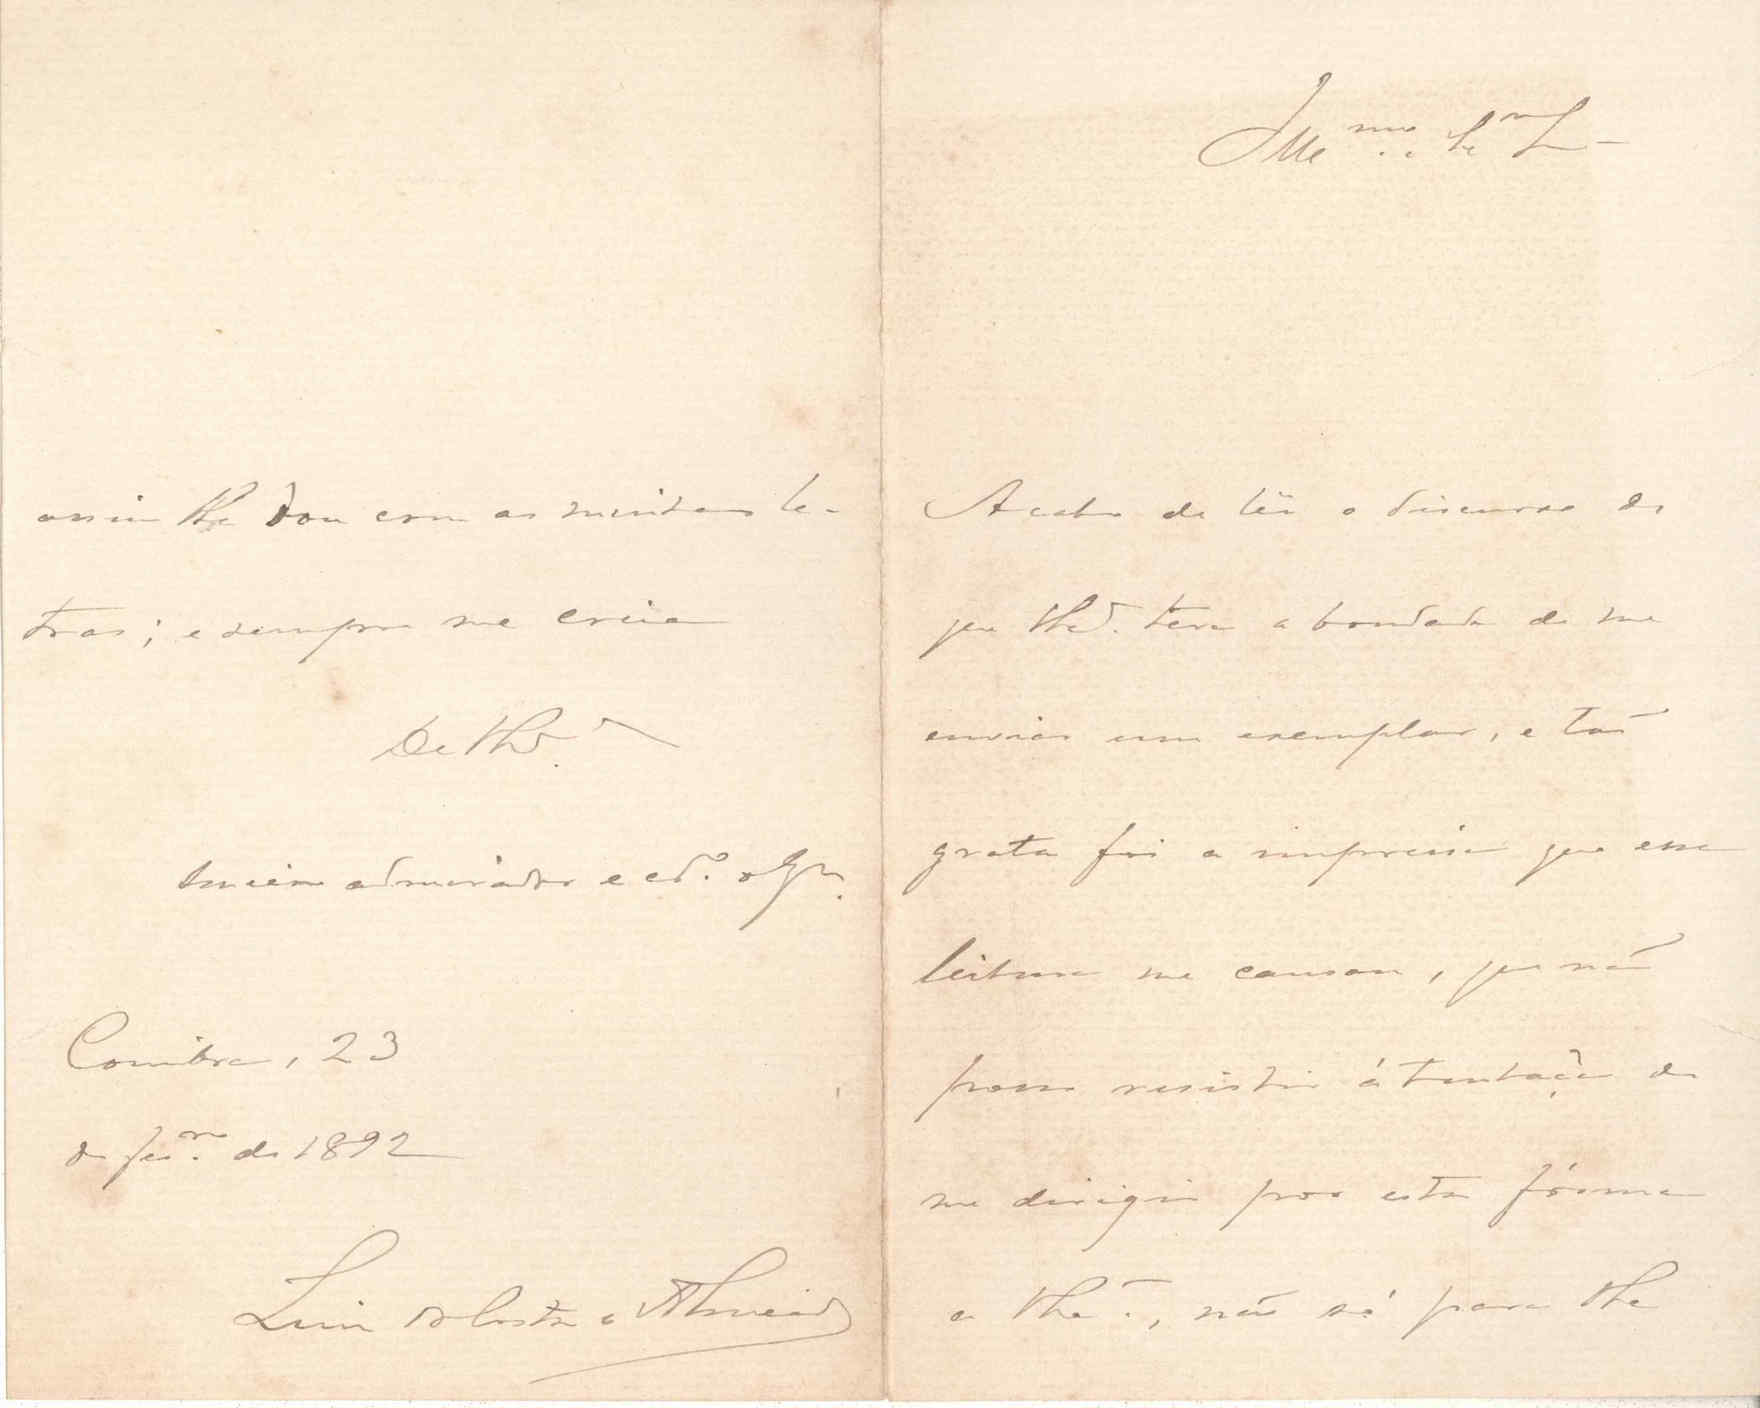 Ill.mo e Ex.mo Sr.
Acabo de lêr o discurso de
que V. Ex.ª teve a bondade de me
enviar um exemplar, e tão
grata foi a impressão que essa
leitura me causou, que não
posso resistir á tentação de
me dirigir por esta fórma
a V. Ex.ª, não só para lhe
assim lhe dou com as minhas le-
tras; e sempre me creia
De V. Ex.ª
admirador e
Coimbra, 23
de fev.ro de 1892
Luiz da Costa e Almeida